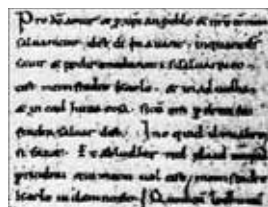 Pro dõ amur & pxpian poblo & nrõ cõmun
saluament. dist di in auant. inquantdš
sauir & podir medunat. sisaluaraieo.
cist meon fradre karlo. & in ad iudha
& in cad huna cosa. sicũ om p dreit son
fradra saluar dist. Ino quid il mialtre
si faz&. Et abludher nul plaid nũquã
prindrai qui meon uol cist. meon fradre
karle in damno sit. Quod cũ lodhuuic